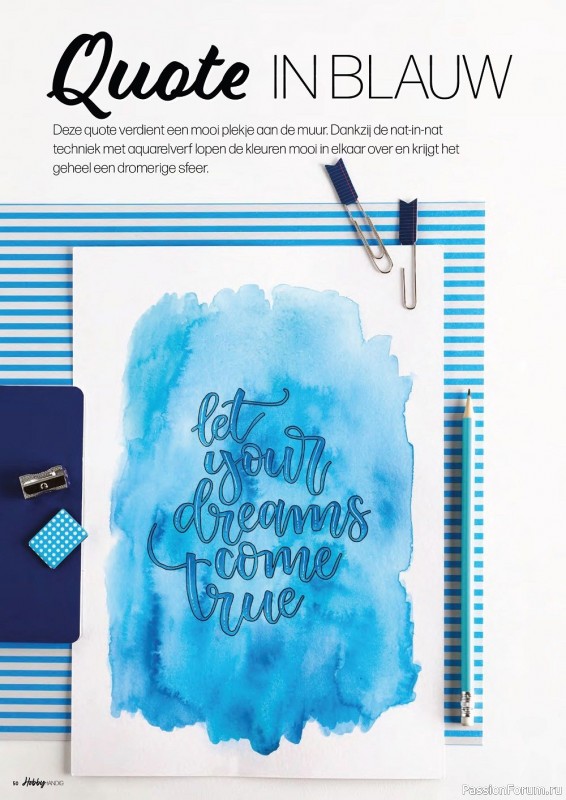 Quote IN BLAUW
Deze quote verdient een mooi plekje aan de muur. Dankzij de nat-in-nat
techniek met aquarelverf lopen de kleuren mooi in elkaar over en krijgt het
geheel een dromerige sfeer.
let
your
dreams
come
true
50 HobbyHANDIG
PassionForum.ru